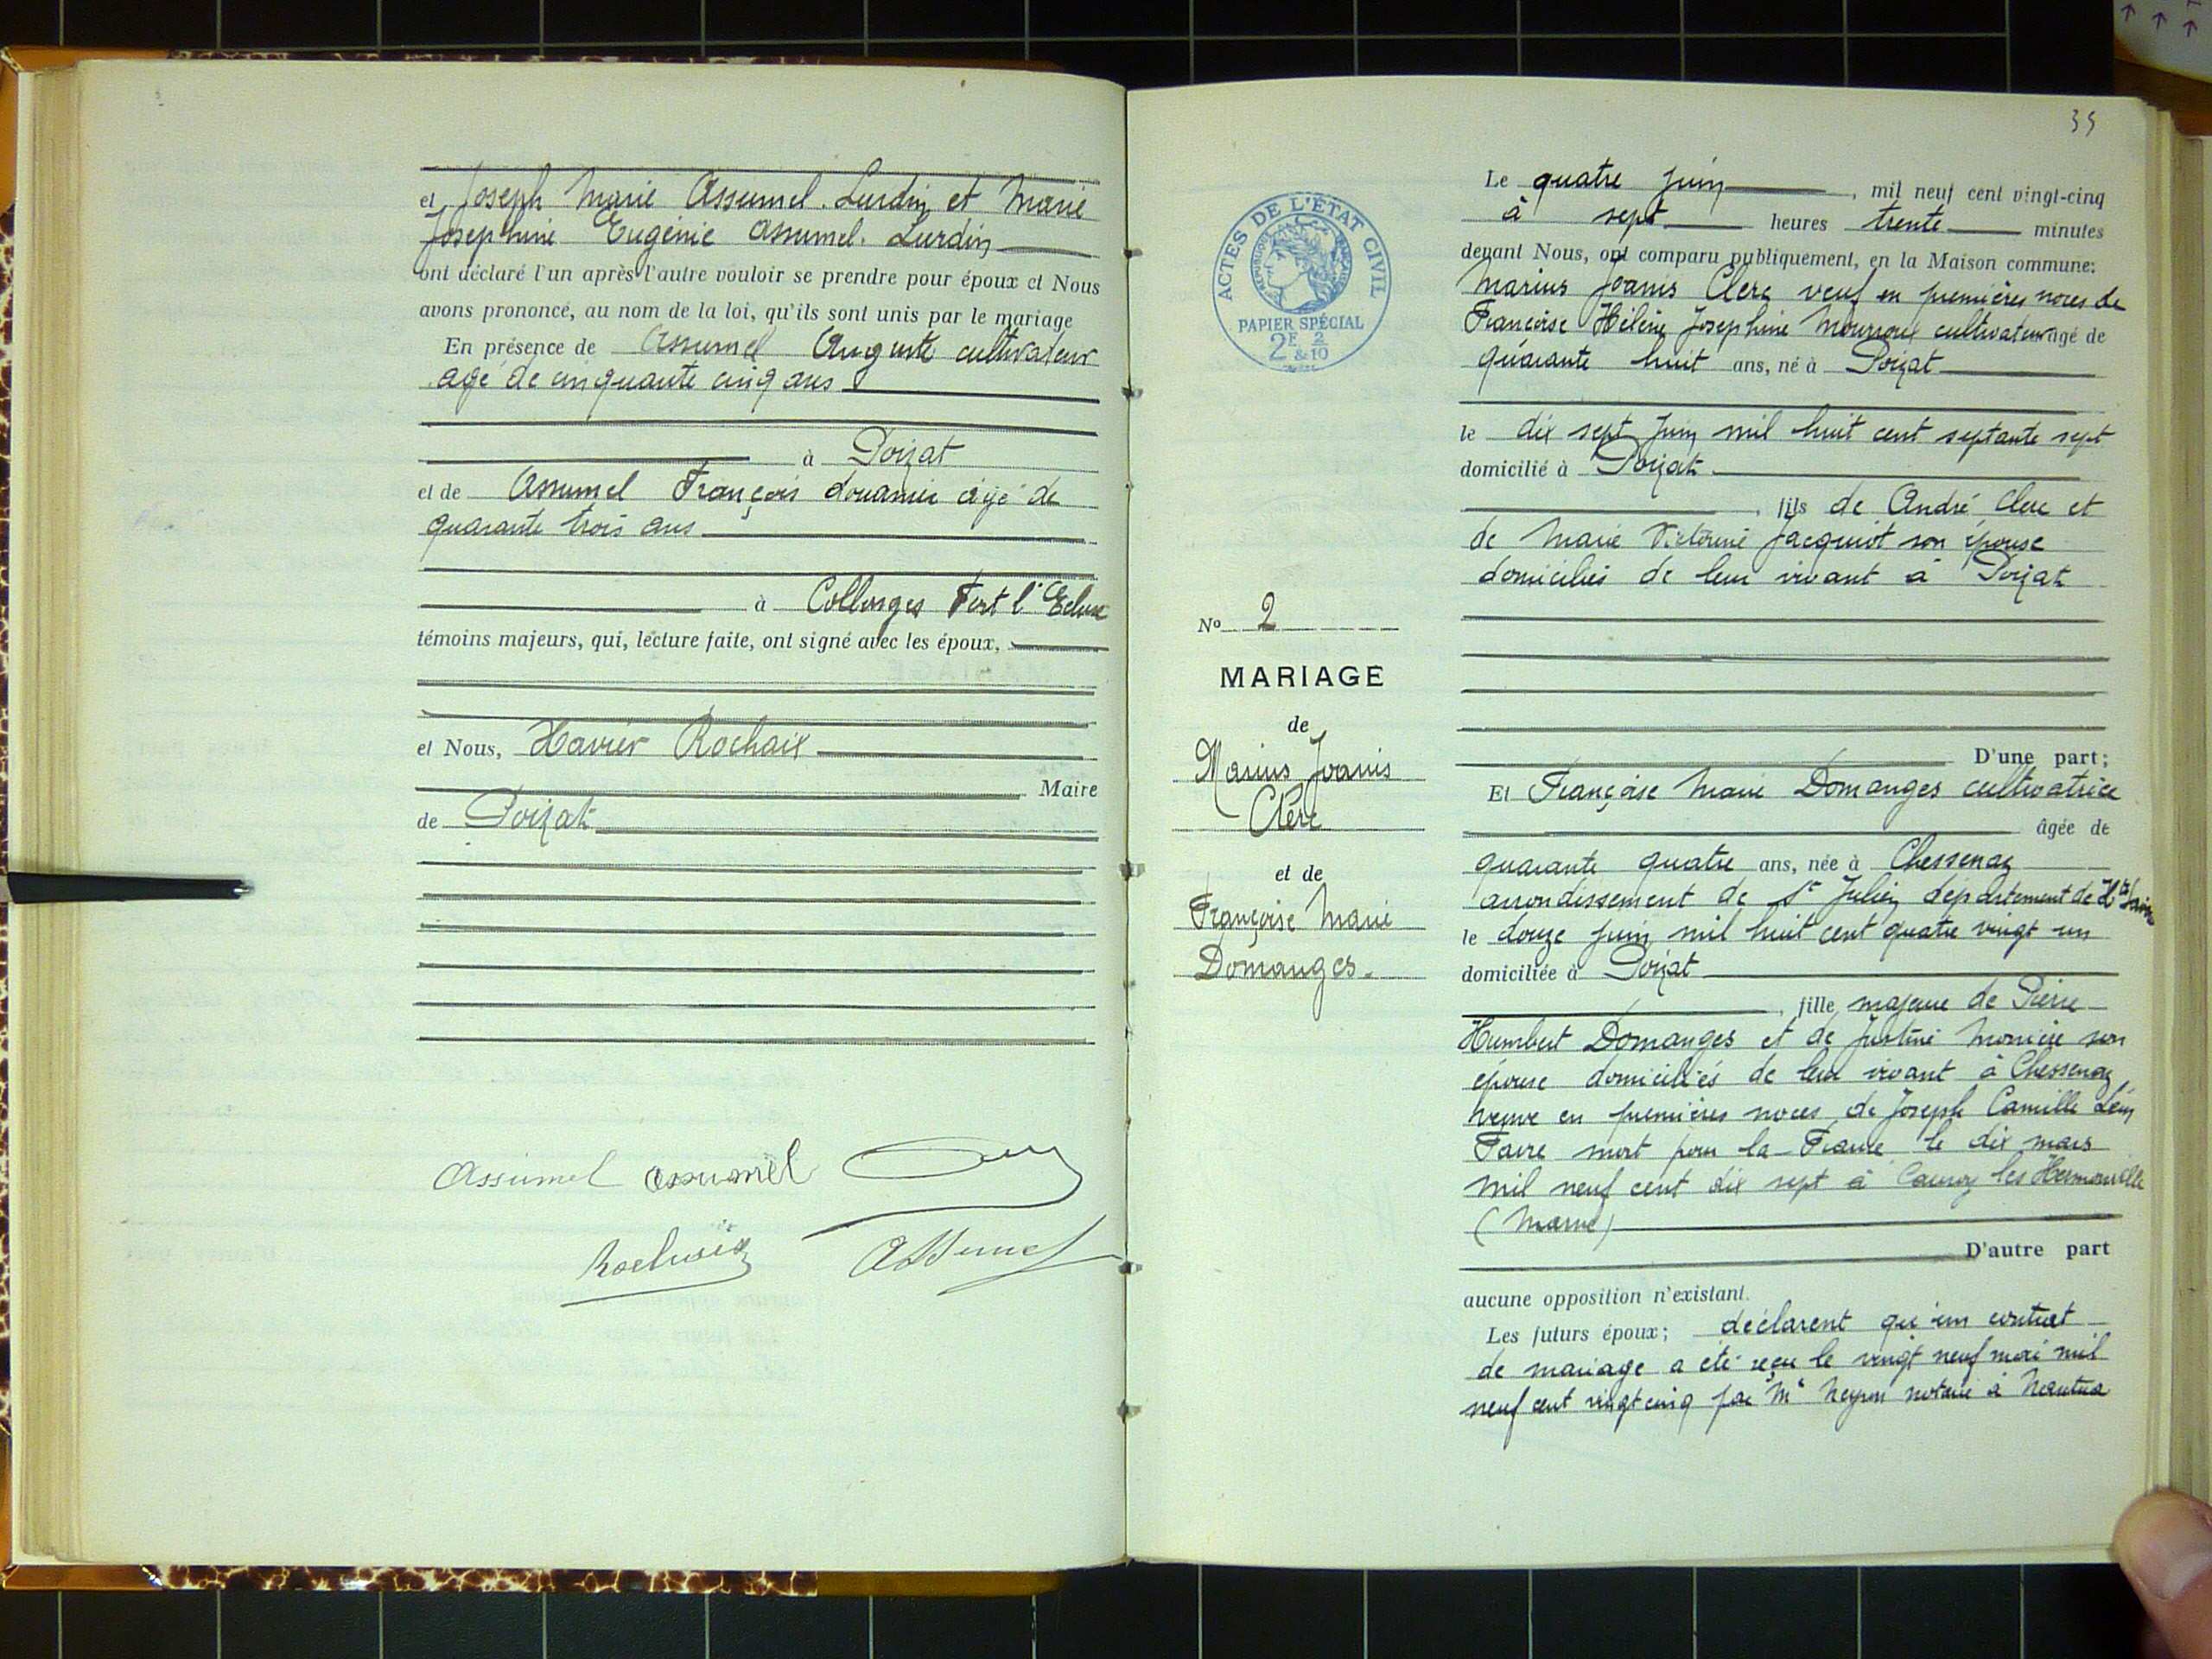 et Joseph Marie Assumel. Lurdin et Marie
Josephine Eugénie Assumel. Lurdin
ont déclaré l'un après l'autre vouloir se prendre pour époux et Nous
avons prononcé, au nom de la loi, qu'ils sont unis par le mariage
En présence de Assumel Auguste cultivateur
agé de cinquante cinq ans
à Poizat
et de Assumel François douanier agé de
quarante trois ans
à Collonges Fort l'Ecluse
témoins majeurs, qui, lecture faite, ont signé avec les époux,
et Nous, Xavier Rochaix
Maire
de Poizat
Assumel Assumel
Rochaix Assumel
35
ACTES DE L'ÉTAT CIVIL
RÉPUBLIQUE FRANÇAISE
PAPIER SPÉCIAL
2E 2/10
&
No 2
MARIAGE
de
Marius Joanis
Clerc
et de
Françoise Marie
Domanges.
Le quatre juin, mil neuf cent vingt-cinq
à sept heures trente minutes
devant Nous, ont comparu publiquement, en la Maison commune:
Marius Joanis Clerc veuf en premières noces de
Françoise Hélène Josephine Mourroux cultivateur agé de
quarante huit ans, né à Poizat
le dix sept Juin mil huit cent septante sept
domicilié à Poizat
, fils de André Clerc et
de Marie Victorine Jacquiot son épouse
domiciliés de leur vivant à Poizat
D'une part;
Et Françoise Marie Domanges cultivatrice
âgée de
quarante quatre ans, née à Chessenaz
arrondissement de St Julien département de Hte Savoie
le douze juin mil huit cent quatre vingt un
domiciliée à Poizat
, fille majeure de Pierre
Humbert Domanges et de Justine son
épouse domiciliés de leur vivant à Chessenaz
veuve en premières noces de Joseph Camille Léon
Favre mort pour la France le dix mars
mil neuf cent dix sept à Cauroy les Hermonville
(Marne)
D'autre part
aucune opposition n'existant.
Les futurs époux; déclarent qu'un contrat
de mariage a été reçu le vingt neuf mai mil
neuf cent vingt cinq par Me Neyron notaire à Nantua